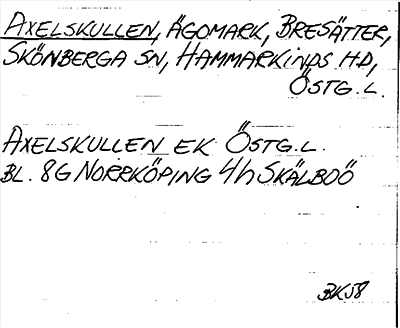 AXELSKULLEN, ÄGOMARK, BRESÄTTER,
SKÖNBERGA SN, HAMMARKINDS HD,
ÖSTG. L.
AXELSKULLEN EK ÖSTG. L.
BL. 8G NORRKÖPING 4h SKÄLBOÖ
BK58